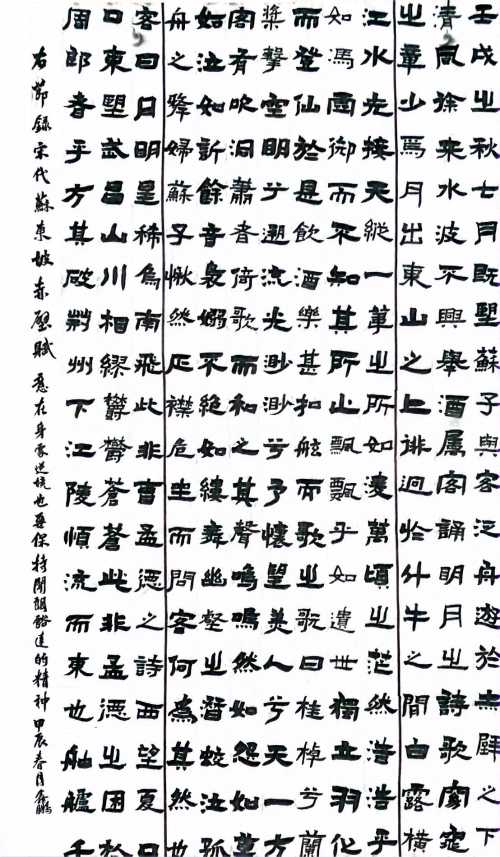 壬戌之秋七月既望蘇子與客泛舟遊於赤壁之下
清風徐來水波不興舉酒屬客誦明月之詩歌窈窕
之章少焉月出東山之上徘徊於斗牛之間白露橫
江水光接天縱一葦之所如凌萬頃之茫然浩浩乎
如馮虛御而不知其所止飄飄乎如遺世獨立羽化
而登仙於是飲酒樂甚扣舷而歌之歌曰桂棹兮蘭
槳擊空明兮遡流光渺渺兮予懷望美人兮天一方
客有吹洞蕭者倚歌而和之其聲嗚嗚然如怨如慕
如泣如訴餘音裊嫋不絕如縷舞幽壑之潛蛟泣孤
舟之嫠婦蘇子愀然正襟危坐而問客何為其然也
客曰月明星稀烏南飛此非曹孟德之詩西望夏口
口東望武昌山川相繆鬱鬱蒼蒼此非孟德之困於
周郎者乎方其破荊州下江陵順流而東也舳艫千
右節錄宋代蘇東坡赤壁賦 意在身處逆境也要保持開朗豁達的精神 甲辰春月